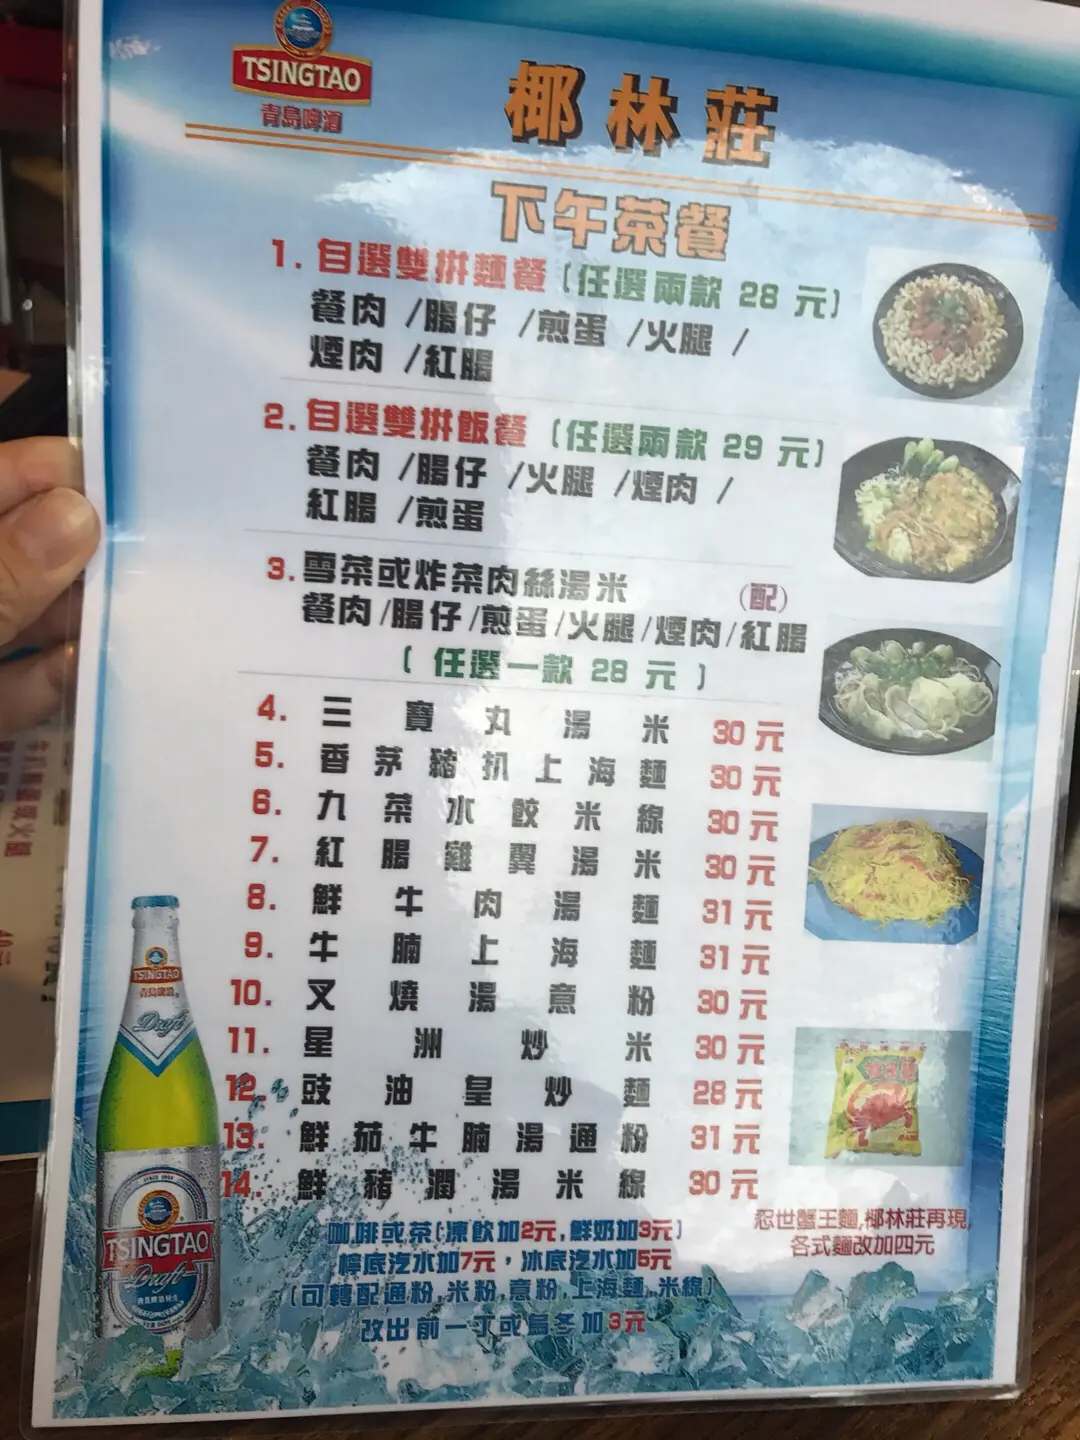 TSINGTAO
青島啤酒
椰林莊
下午茶餐
1. 自選雙拼麵餐 (任選兩款 28 元)
餐肉 /腸仔 /煎蛋 /火腿 /
煙肉 /紅腸
2. 自選雙拼飯餐 (任選兩款 29 元)
餐肉 /腸仔 /火腿 /煙肉 /
紅腸 /煎蛋
3. 雪菜或炸菜肉絲湯米 (配)
餐肉/腸仔/煎蛋/火腿/煙肉/紅腸
( 任選一款 28 元 )
4. 三寶丸湯米 30元
5. 香茅豬扒上海麵 30元
6. 九菜水餃米線 30元
7. 紅腸雞翼湯米 30元
8. 鮮牛肉湯麵 31元
9. 牛腩上海麵 31元
10. 叉燒湯意粉 30元
11. 星洲炒米 30元
12. 豉油皇炒麵 28元
13. 鮮茄牛腩湯通粉 31元
14. 鮮豬潤湯米線 30元
咖啡或茶(凍飲加2元,鮮奶加3元)
檸底汽水加7元，冰底汽水加5元
(可轉配通粉,米粉,意粉,上海麵,米線)
改出前一丁或烏冬加3元
忍世蟹王麵,椰林莊再現,
各式麵改加四元
TSINGTAO
青島啤酒
Draft
TSINGTAO
Draft